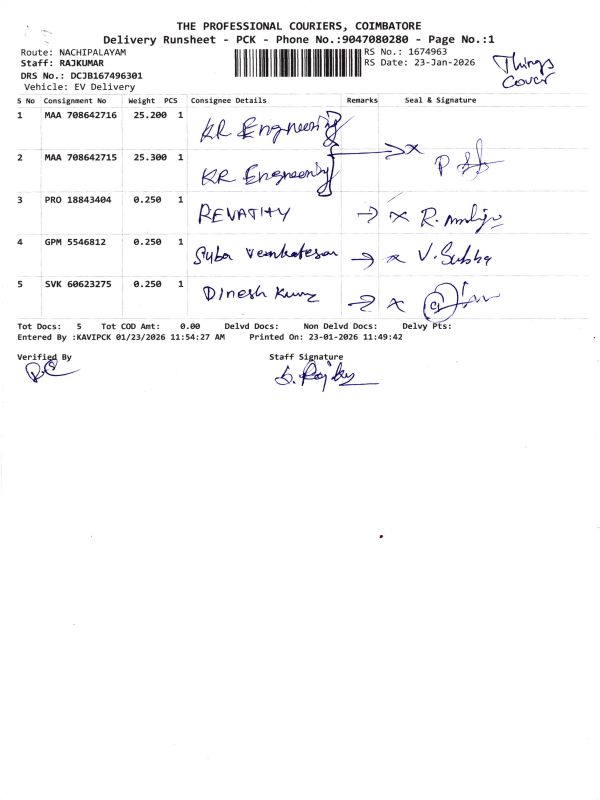 THE PROFESSIONAL COURIERS, COIMBATORE
Delivery Runsheet - PCK - Phone No.:9047080280 - Page No.:1
Route: NACHIPALAYAM
RS No.: 1674963
Staff: RAJKUMAR
RS Date: 23-Jan-2026
Things
Cover
DRS No.: DCJB167496301
Vehicle: EV Delivery
S No Consignment No Weight PCS Consignee Details Remarks Seal & Signature
1 MAA 708642716 25.200 1 KR Engneering
2 MAA 708642715 25.300 1 KR Engneering
3 PRO 18843404 0.250 1 REVATHY
4 GPM 5546812 0.250 1 Suba Venkatesan V. Subha
5 SVK 60623275 0.250 1 Dinesh Kumar
Tot Docs: 5 Tot COD Amt: 0.00 Delvd Docs: Non Delvd Docs: Delvy Pts:
Entered By :KAVIPCK 01/23/2026 11:54:27 AM Printed On: 23-01-2026 11:49:42
Verified By Staff Signature